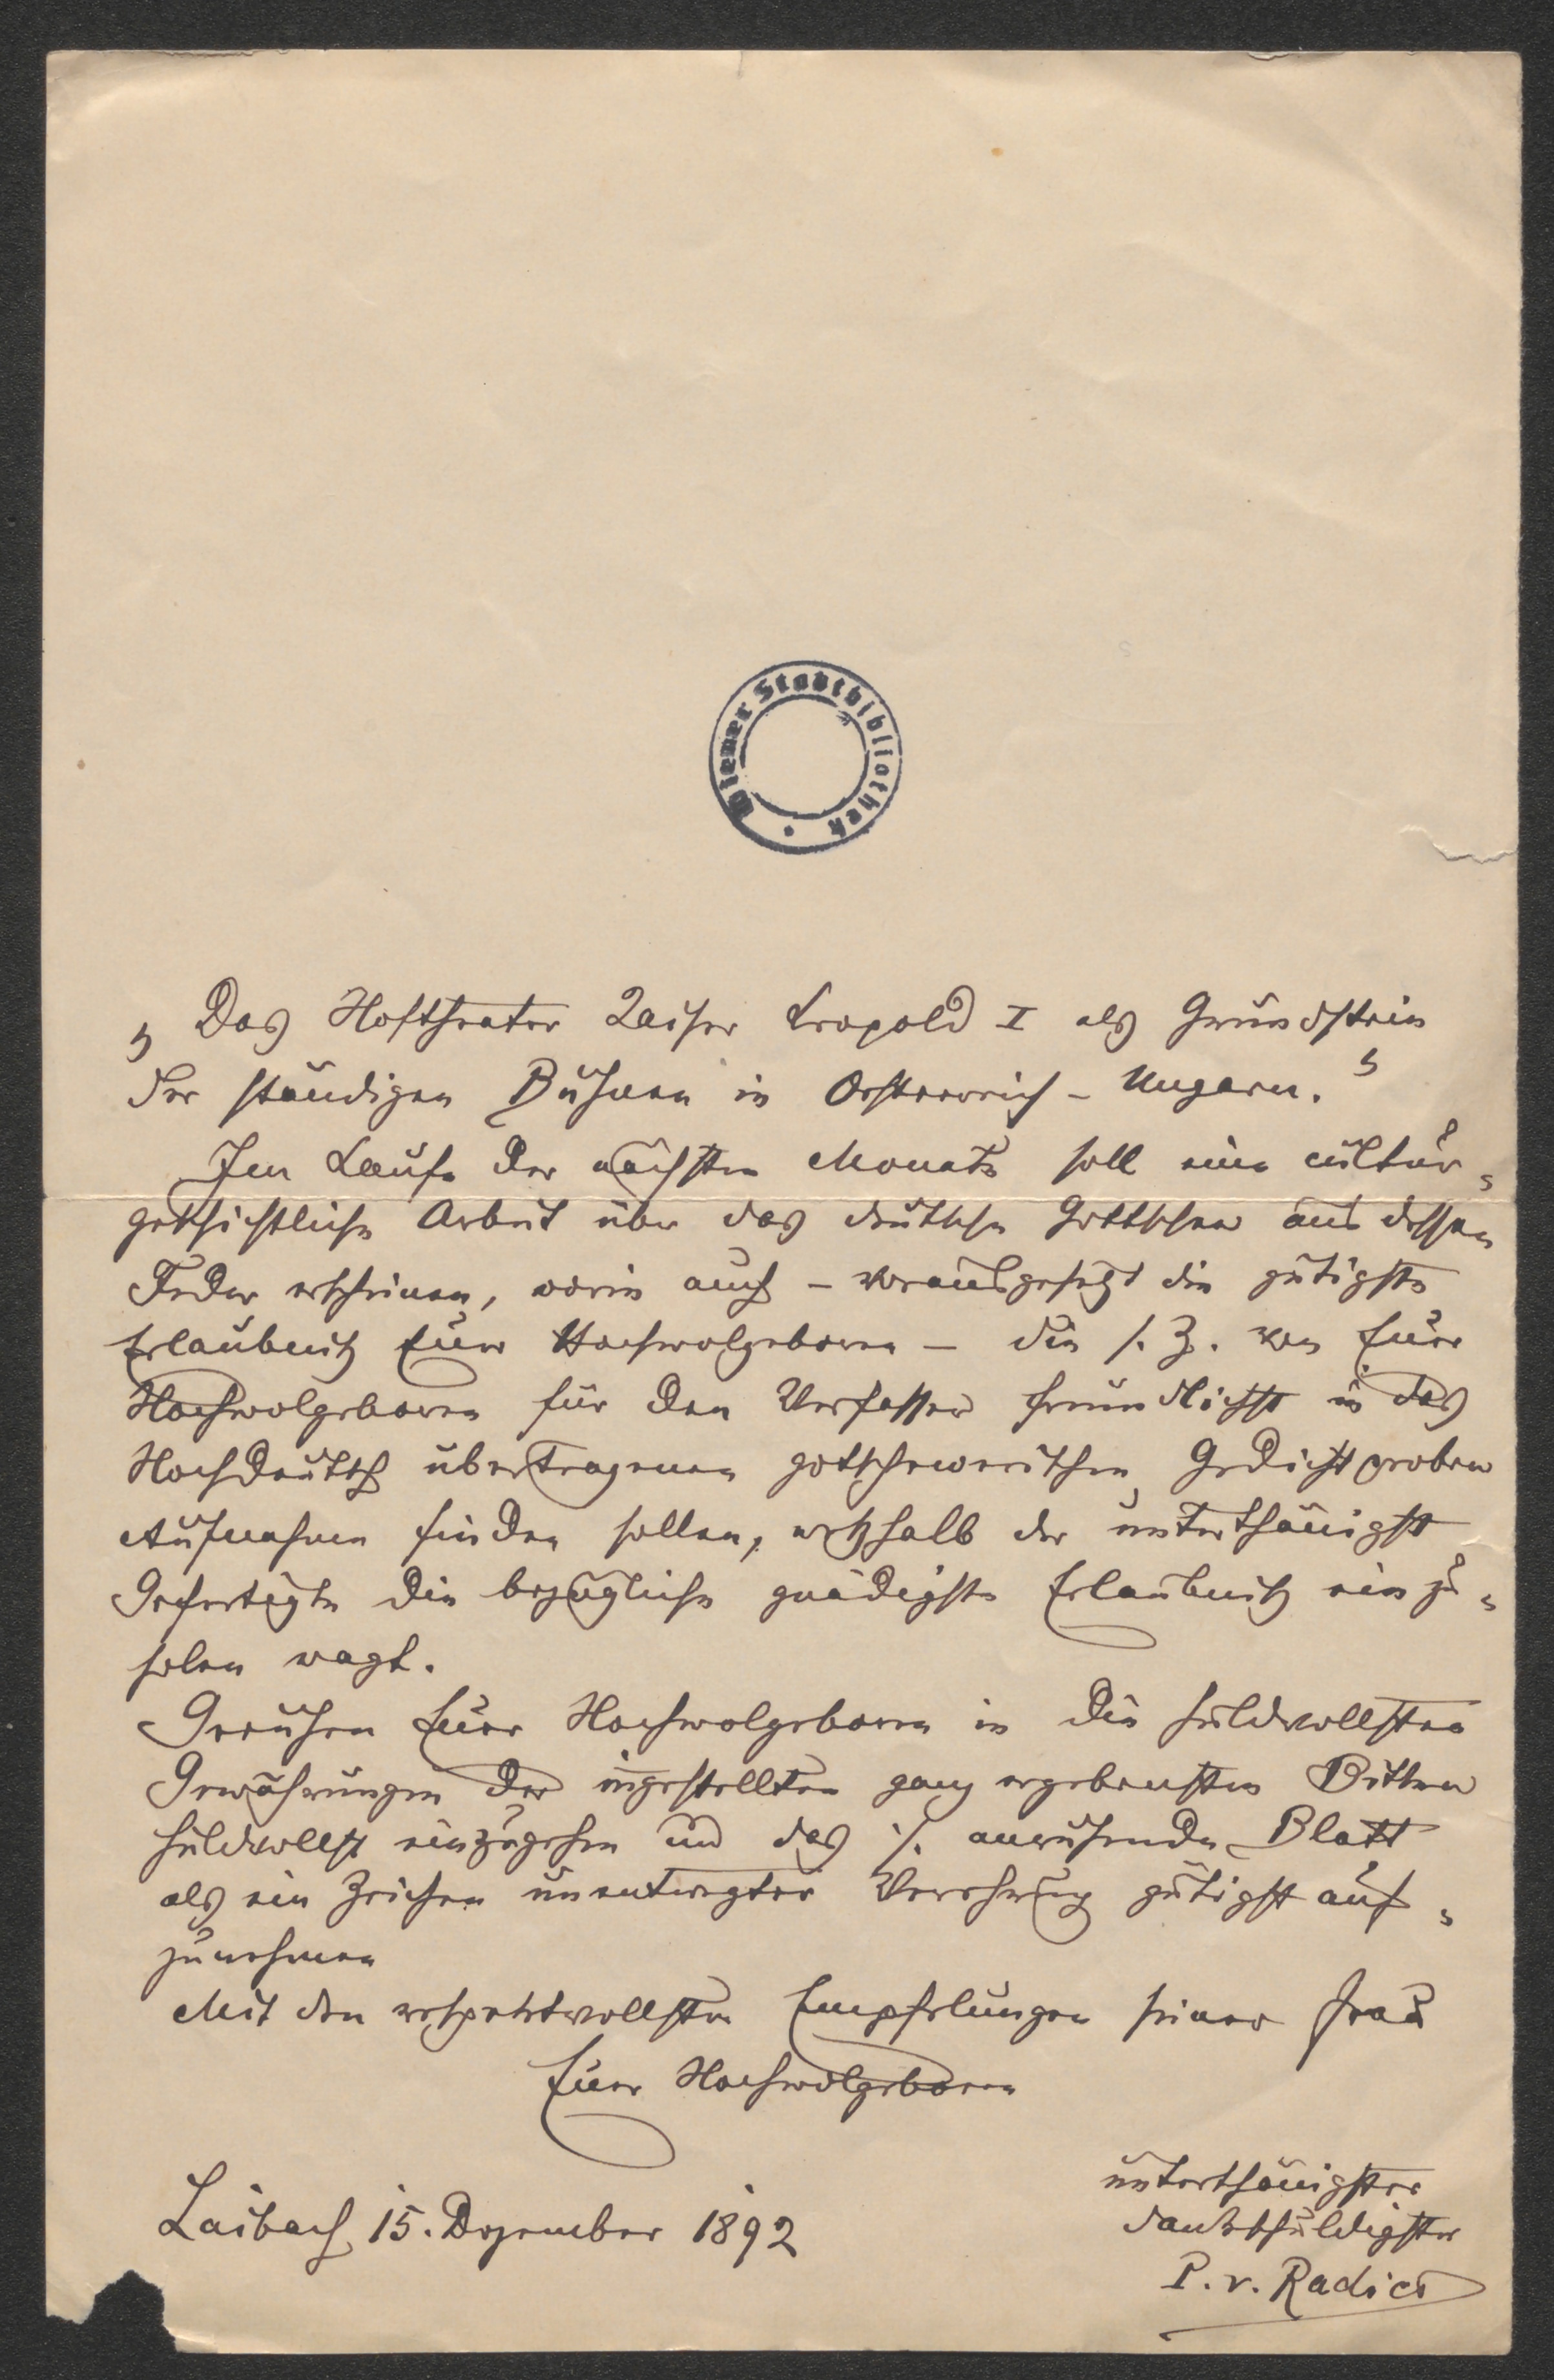 Wiener Stadtbibliothek
„Das Hoftheater Kaiser Leopold I als Grundstein
der ständigen Bühnen in Oesterreich-Ungarn."
Im Laufe der nächsten Monate soll eine cultur=
geschichtliche Arbeit über das deutsche Gottschee aus dessen
Feder erscheinen, worin auch – vorausgesetzt die gütigste
Erlaubniß Euer Hochwolgeboren – die s. Z. von Euer
Hochwolgeboren für den Verfasser freundlichst in das
Hochdeutsch übertragenen gottscheweischen Gedichtproben
Aufnahme finden sollen, weßhalb der unterthänigst
Gefertigte die bezügliche gnädigste Erlaubniß einzu=
holen wagt.
Geruhen Euer Hochwolgeboren in die huldvollsten
Gewährungen der ingestellten ganz ergebensten Bitten
huldvollst einzugehen und das ·/. anruhende Blatt
als ein Zeichen unentwegter Verehrung gütigst auf=
zunehmen
Mit den respektvollsten Empfehlungen seiner Frau
Euer Hochwolgeboren
unterthänigster
dankschuldigster
Laibach 15. Dezember 1892
P. v. Radics